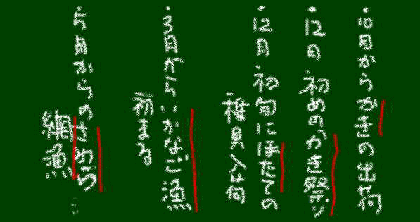 ・10日からかきの出荷
・12日 初めのかき祭り
・12日 初旬にほたての
稚貝入荷
・3日からいかなご漁
初まる
・5月からのさめつ
網漁